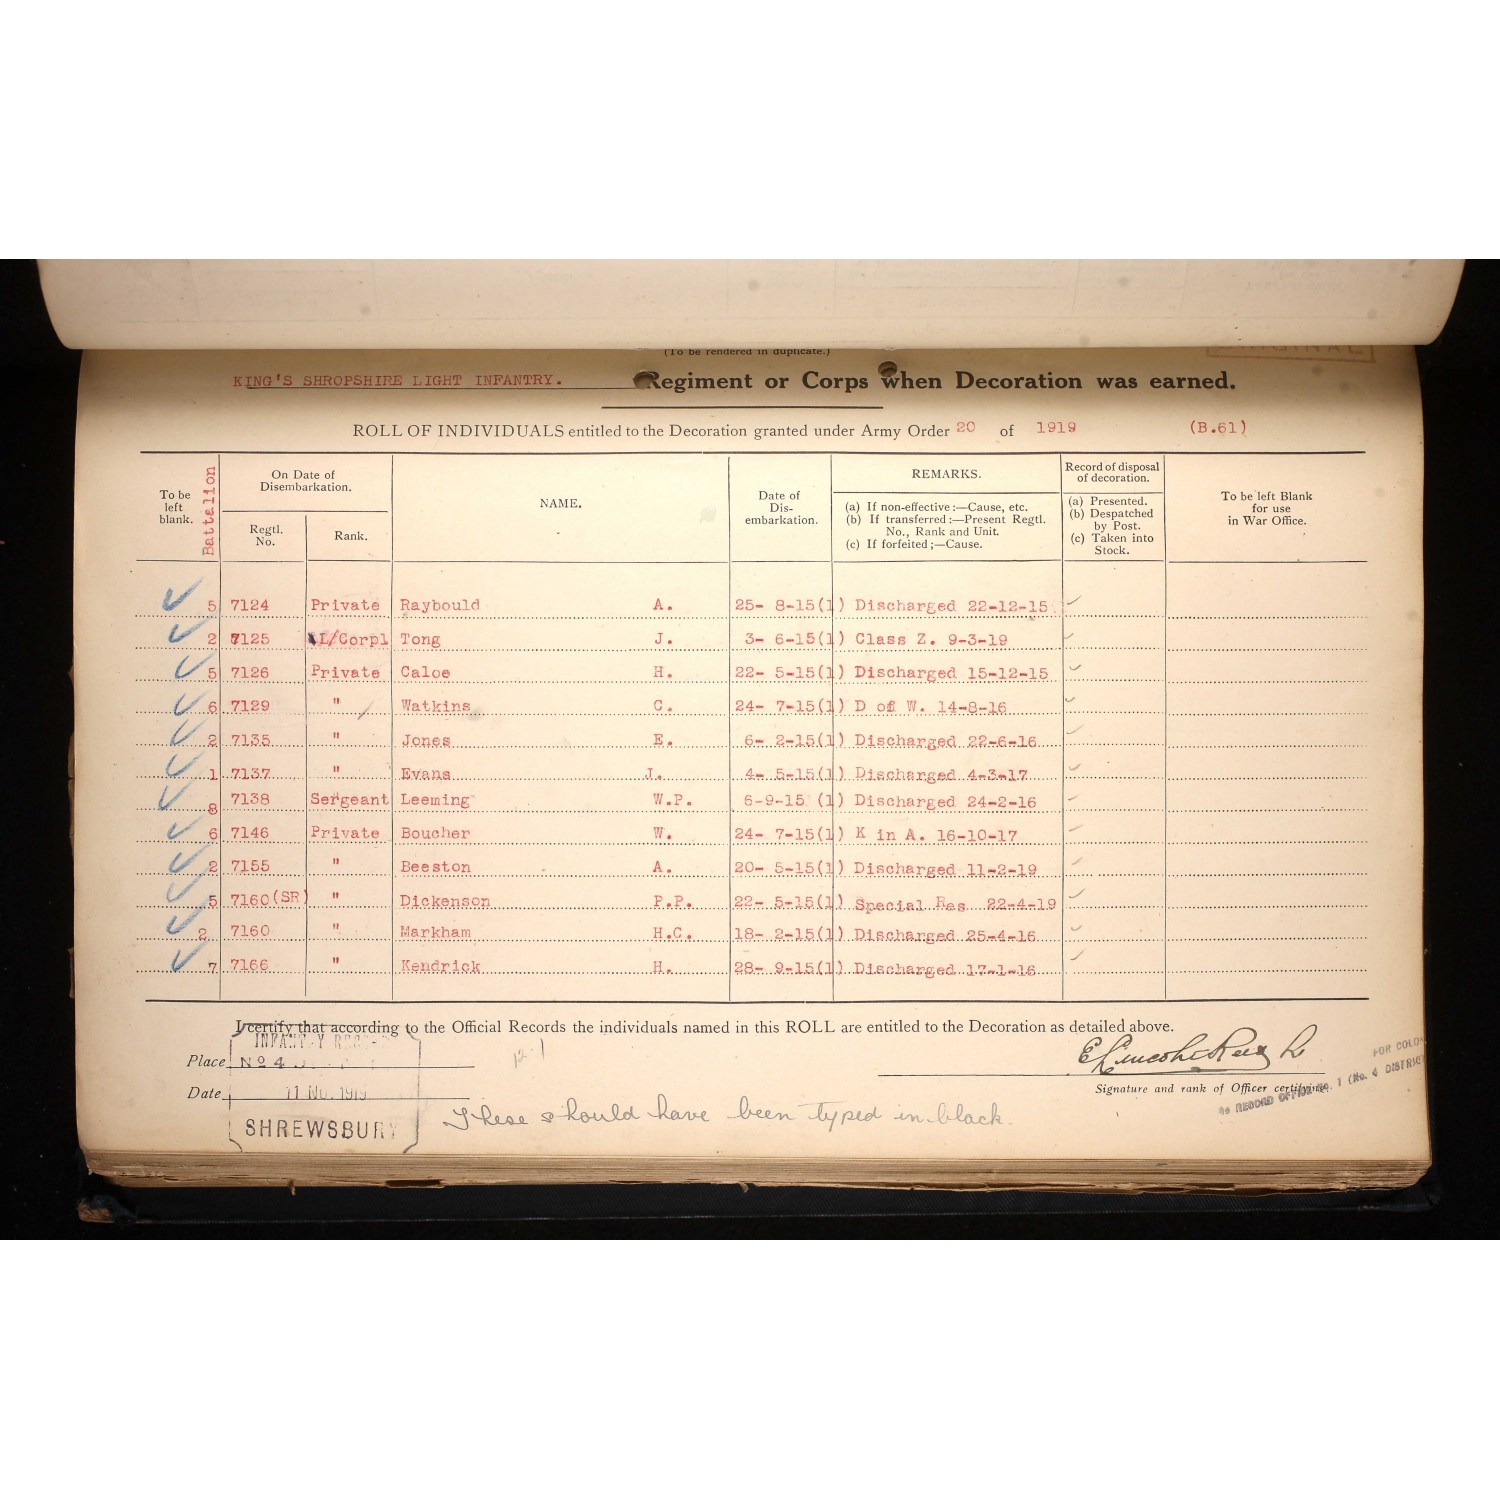 (To be rendered in duplicate.)
KING'S SHROPSHIRE LIGHT INFANTRY. Regiment or Corps when Decoration was earned.
ROLL OF INDIVIDUALS entitled to the Decoration granted under Army Order 20 of 1919 (B.61)
To be left blank. Battalion On Date of Disembarkation. Regtl. No. Rank. NAME. Date of Dis-embarkation. REMARKS. (a) If non-effective:—Cause, etc. (b) If transferred:—Present Regtl. No., Rank and Unit. (c) If forfeited;—Cause. Record of disposal of decoration. (a) Presented. (b) Despatched by Post. (c) Taken into Stock. To be left Blank for use in War Office.
5 7124 Private Raybould A. 25- 8-15(1) Discharged 22-12-15
2 7125 L/Corpl Tong J. 3- 6-15(1) Class Z. 9-3-19
5 7126 Private Caloe H. 22- 5-15(1) Discharged 15-12-15
6 7129 " Watkins C. 24- 7-15(1) D of W. 14-8-16
2 7135 " Jones E. 6- 2-15(1) Discharged 22-6-16
1 7137 " Evans J. 4- 5-15(1) Discharged 4-3-17
8 7138 Sergeant Leeming W.P. 6-9-15 (1) Discharged 24-2-16
6 7146 Private Boucher W. 24- 7-15(1) K in A. 16-10-17
2 7155 " Beeston A. 20- 5-15(1) Discharged 11-2-19
5 7160(SR) " Dickenson P.P. 22- 5-15(1) Special Res 22-4-19
2 7160 " Markham H.C. 18- 2-15(1) Discharged 25-4-16
7 7166 " Kendrick H. 28- 9-15(1) Discharged 17-1-16
I certify that according to the Official Records the individuals named in this ROLL are entitled to the Decoration as detailed above.
INFANTRY
Place No 4
Signature and rank of Officer certifying.
FOR COLO
Date 11 No. 1919
i/c RECORD OFFICE No. 1 (No. 4 DISTRICT
SHREWSBURY
These should have been typed in black.